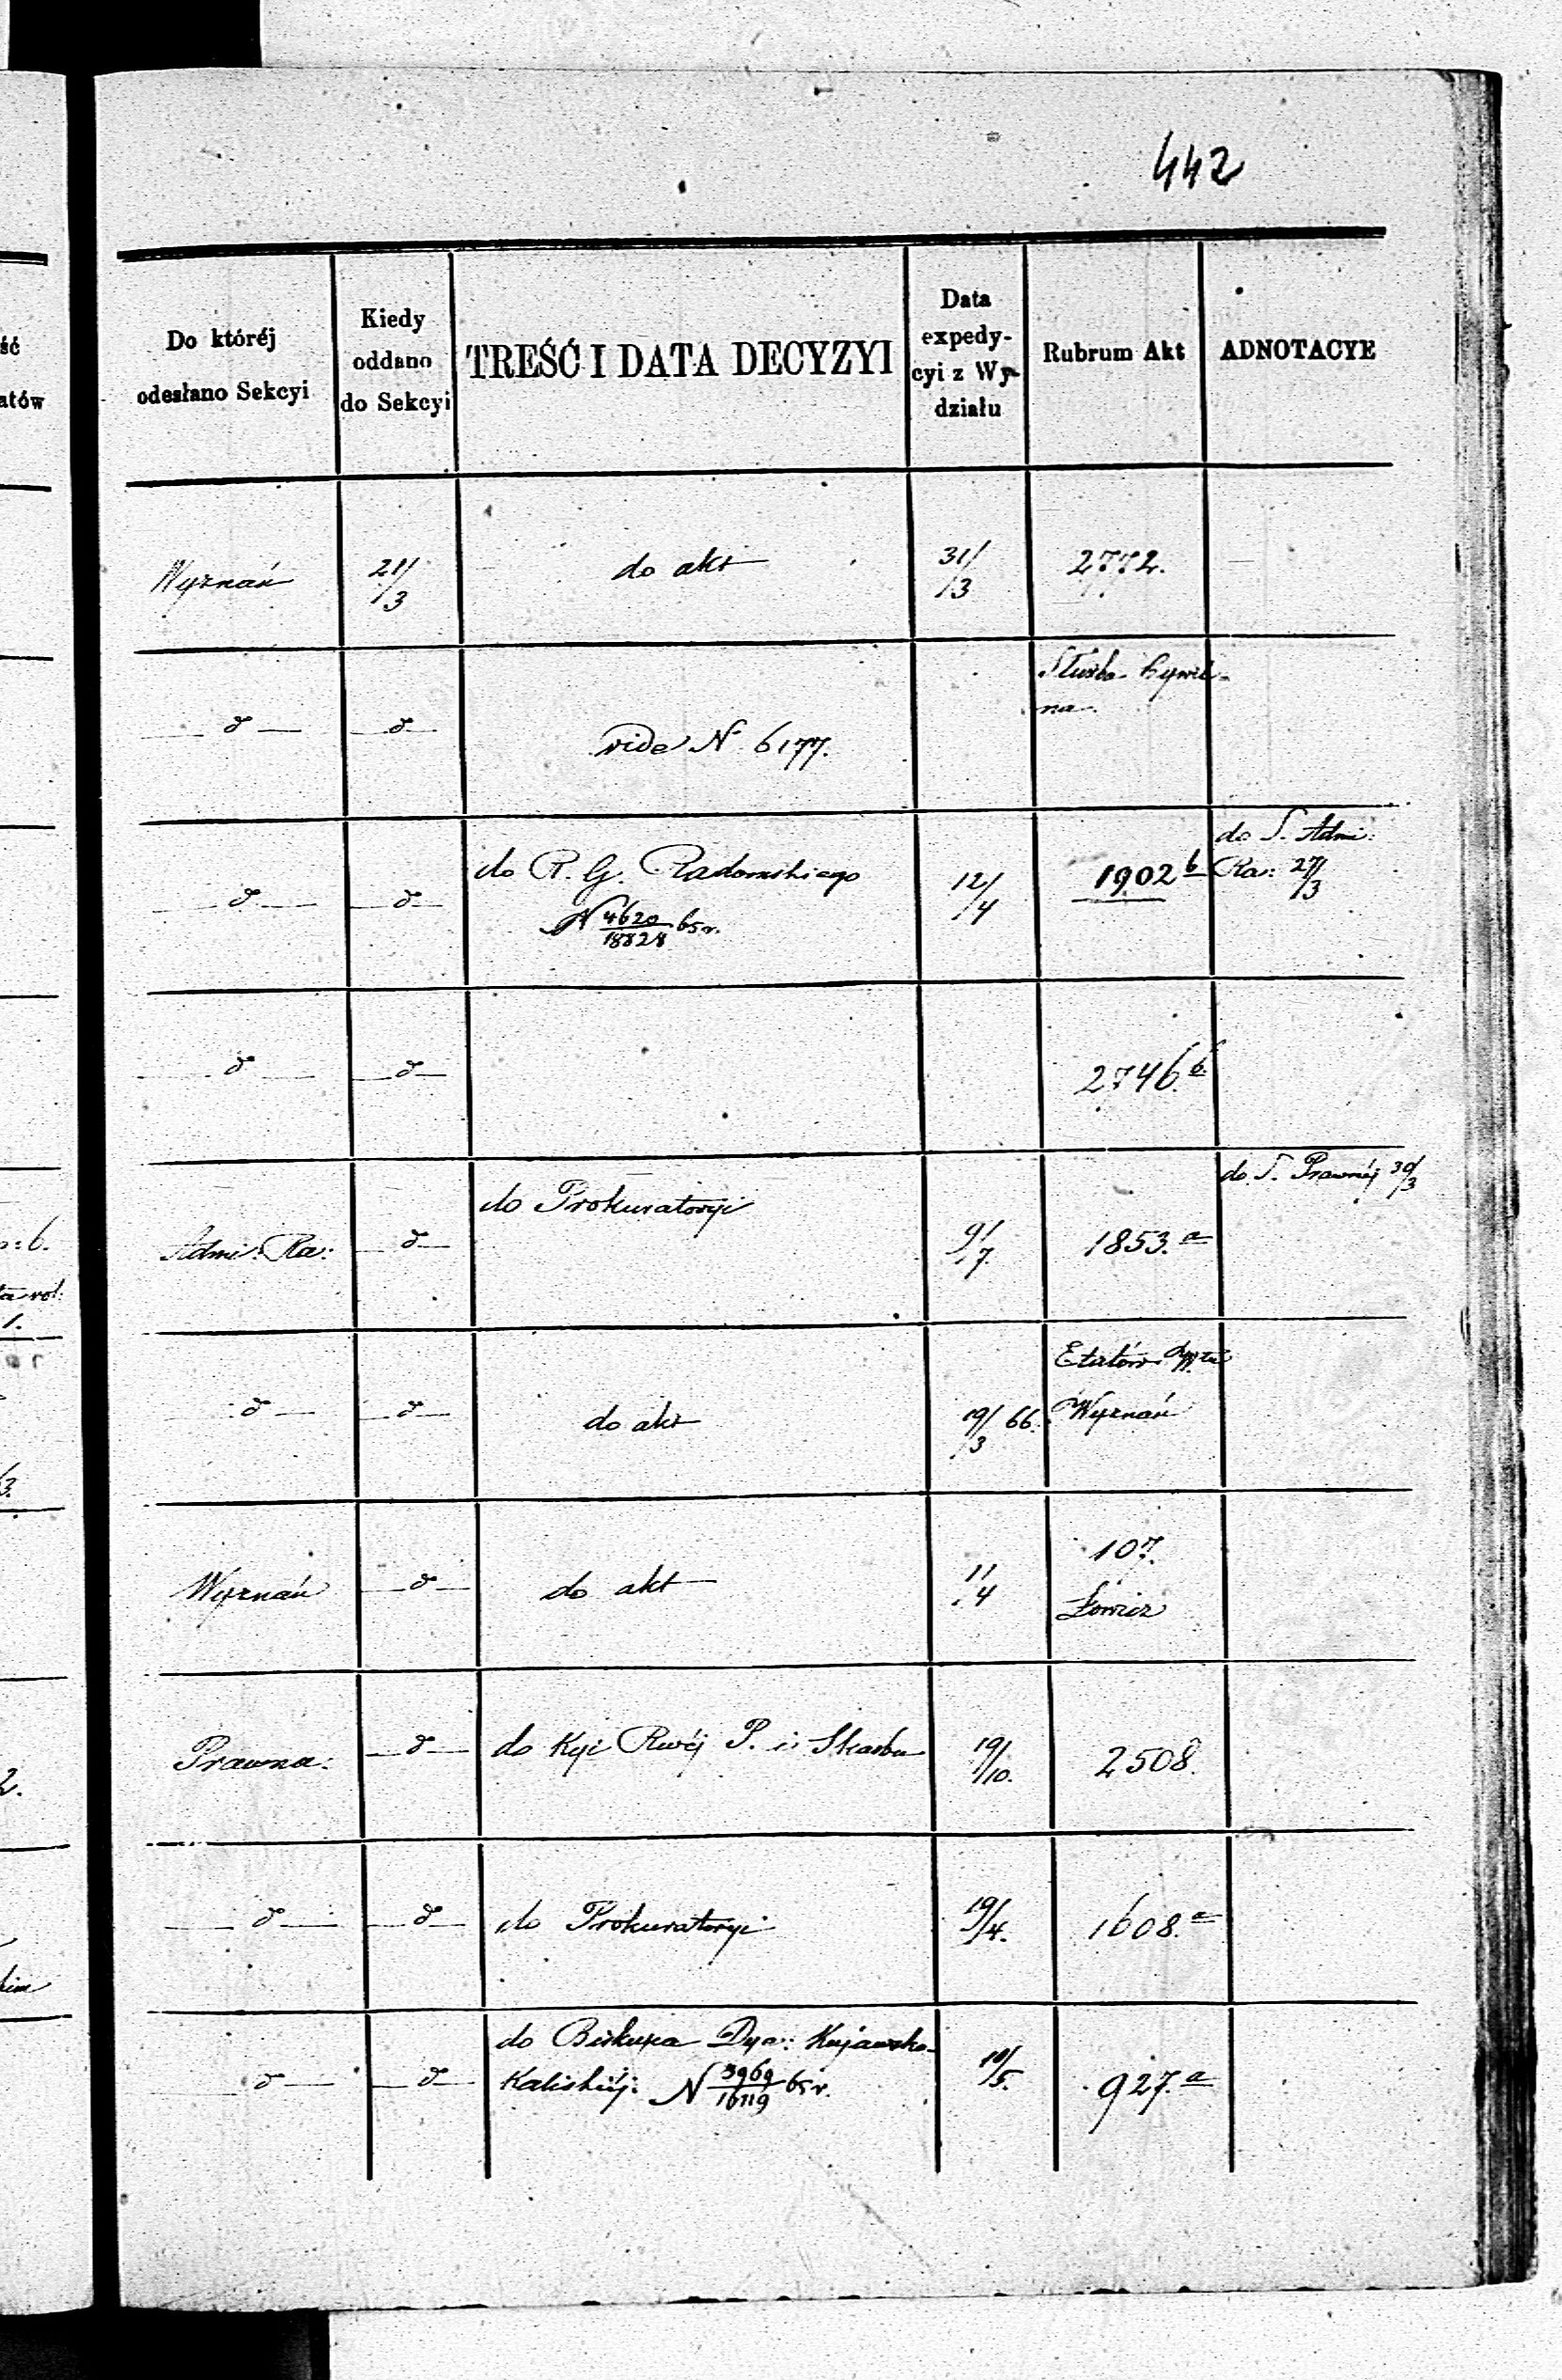 442
Do któréj
odesłano Sekcyi
Kiedy
oddano
do Sekcyi
TREŚĆ I DATA DECYZYI
Data
expedy-
cyi z Wy-
działu
Rubrum Akt
ADNOTACYE
Wyznań
21/3
do akt
31/3
2772.
— d — — d —
vide N 6177.
Służba Cywil-
na.
— d — — d —
do R. G. Radomskiego
N 4620/18828 65 r.
12/4
1902 b
do S. Admi:
Ra: 27/3
— d — — d —
2746. b.
Admi: Ra: — d —
do Prokuratoryi
9/7.
1853. a
do S. Prawnéj 30/3
— d — — d —
do akt
19/3 66.
Etatów
Wyznań
Wyznań — d —
do akt
11/4
107.
Łowicz
Prawna: — d —
do Kyi Rwéj P. i Skarbu
19/10.
2508.
— d — — d —
do Prokuratoryi
19/4.
1608. a
— d — — d —
do Biskupa Dya: Kujawsko-
Kaliskiéj: N 3969/16119 65 r.
10/5.
927. a
ść
atów